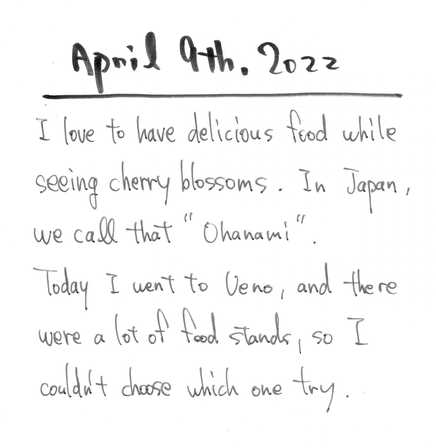 April 9th. 2022
I love to have delicious food while
seeing cherry blossoms. In Japan,
we call that "Ohanami".
Today I went to Ueno, and there
were a lot of food stands, so I
couldn't choose which one try.